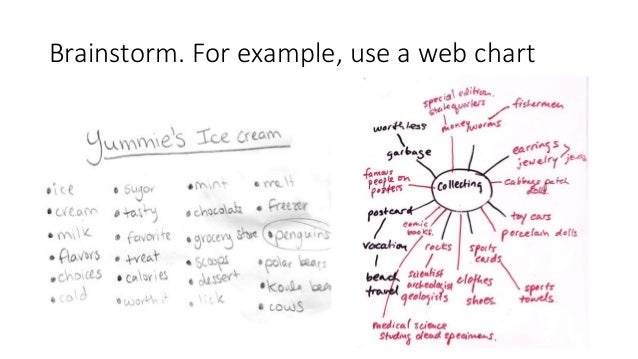 Brainstorm. For example, use a web chart
Yummie's Ice cream
• ice
• cream
• milk
• flavors
• choices
• cold
• sugar
• tasty
• favorite
• treat
• calories
• worth it
• mint
• chocolate
• grocery store
• scoops
• dessert
• lick
• melt
• freezer
• penguins
• polar bears
• koala bea
• cows
special edition
state quarters
fishermen
worthless
money
worms
garbage
earrings
jewelry
jewels
famous
people on
posters
Collecting
cabbage patch
dolls
postcard
comic
books
toy cars
porcelain dolls
vacation
rocks
sports
cards
beach
travel
scientist
archeologist
geologists
clothes
shoes
sports
towels
medical science
studing dead specimens.